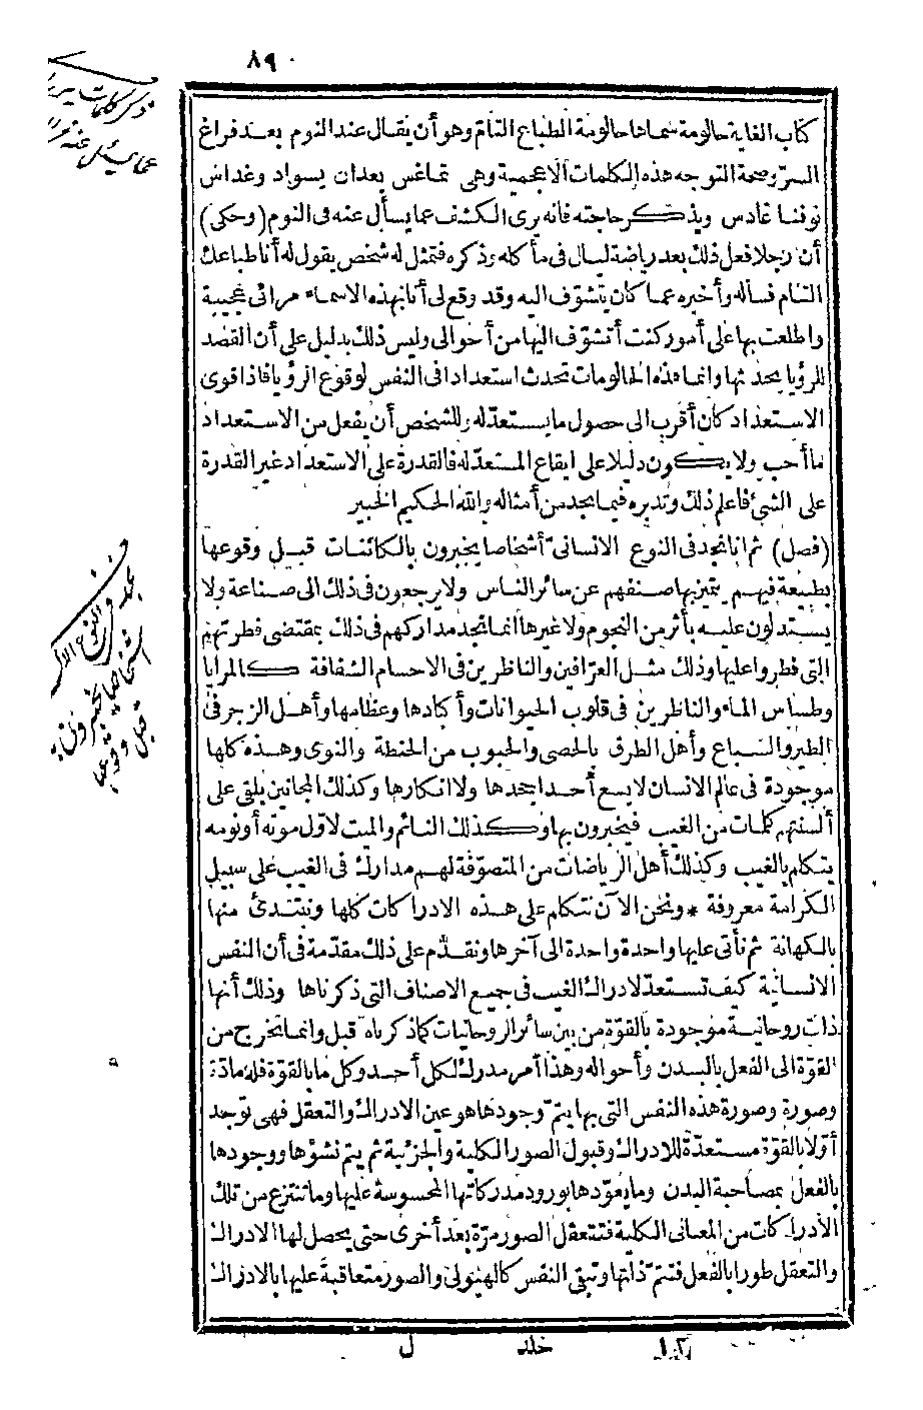 ٨٩
كتاب الغاية حالومة سماها حالومة الطباع التام وهو أن يقال عند النوم بعد فراغ
السر وصحة التوجه هذه الكلمات الاعجمية وهى تماغس بعدان يسواد وغداس
نوفنا غادس ويذكر حاجته فانه يرى الكشف عما يسأل عنه فى النوم (وحكى)
أن رجلا فعل ذلك بعد رياضة ليال فى مأكله وذكره فتمثل له شخص يقول له أنا طباعك
التام فسأله وأخبره عما كان يتشوّف اليه وقد وقع لى أنا بهذه الاسماء مرائى عجيبة
واطلعت بها على أمور كنت أتشوّف اليها من أحوالى وليس ذلك بدليل على أن القصد
للرؤيا يحدثها وانما هذه الحالومات تحدث استعدادا فى النفس لوقوع الرؤيا فاذا قوى
الاستعداد كان أقرب الى حصول ما يستعدّ له وللشخص أن يفعل من الاستعداد
ما أحب ولا يكون دليلا على ايقاع المستعدّ له فالقدرة على الاستعداد غير القدرة
على الشئ فاعلم ذلك وتدبره فيما تجد من أمثاله والله الحكيم الخبير
(فصل) ثم انا نجد فى النوع الانسانىّ أشخاصا يخبرون بالكائنات قبل وقوعها
بطبيعة فيهم يتميز بها صنفهم عن سائر الناس ولا يرجعون فى ذلك الى صناعة ولا
يستدلون عليه بأثر من النجوم ولا غيرها انما نجد مداركهم فى ذلك بمقتضى فطرتهم
التى فطروا عليها وذلك مثل العرّافين والناظرين فى الاجسام الشفافة كالمرايا
وطساس الماء والناظرين فى قلوب الحيوانات وأكبادها وعظامها وأهل الزجر فى
الطير والسباع وأهل الطرق بالحصى والحبوب من الحنطة والنوى وهذه كلها
موجودة فى عالم الانسان لا يسع أحدا جحدها ولا انكارها وكذلك المجانين يلقى على
ألسنتهم كلمات من الغيب فيخبرون بها وكذلك النائم والميت لاوّل موته أو نومه
يتكلم بالغيب وكذلك أهل الرياضات من المتصوّفة لهم مدارك فى الغيب على سبيل
الكرامة معروفة * ونحن الآن نتكلم على هذه الادراكات كلها ونبتدئ منها
بالكهانة ثم نأتى عليها واحدة واحدة الى آخرها ونقدّم على ذلك مقدّمة فى أن النفس
الانسانية كيف تستعدّ لادراك الغيب فى جميع الاصناف التى ذكرناها وذلك أنها
ذات روحانية موجودة بالقوّة من بين سائر الروحانيات كما ذكرناه قبل وانما تخرج من
القوّة الى الفعل بالبدن وأحواله وهذا أمر مدرك لكل أحد وكل ما بالقوّة فله مادّة
وصورة وصورة هذه النفس التى بها يتمّ وجودها هو عين الادراك والتعقل فهى توجد
أوّلا بالقوّة مستعدّة للادراك وقبول الصور الكلية والجزئية ثم يتم نشؤها ووجودها
بالفعل بمصاحبة البدن وما يعوّدها بورود مدركاتها المحسوسة عليها وما تنتزع من تلك
الادراكات من المعانى الكلية فتتعقل الصور مرّة بعد أخرى حتى يحصل لها الادراك
والتعقل طورا بالفعل فتتمّ ذاتها وتبقى النفس كالهيولى والصور متعاقبة عليها بالادراك
١٢ خلد ل